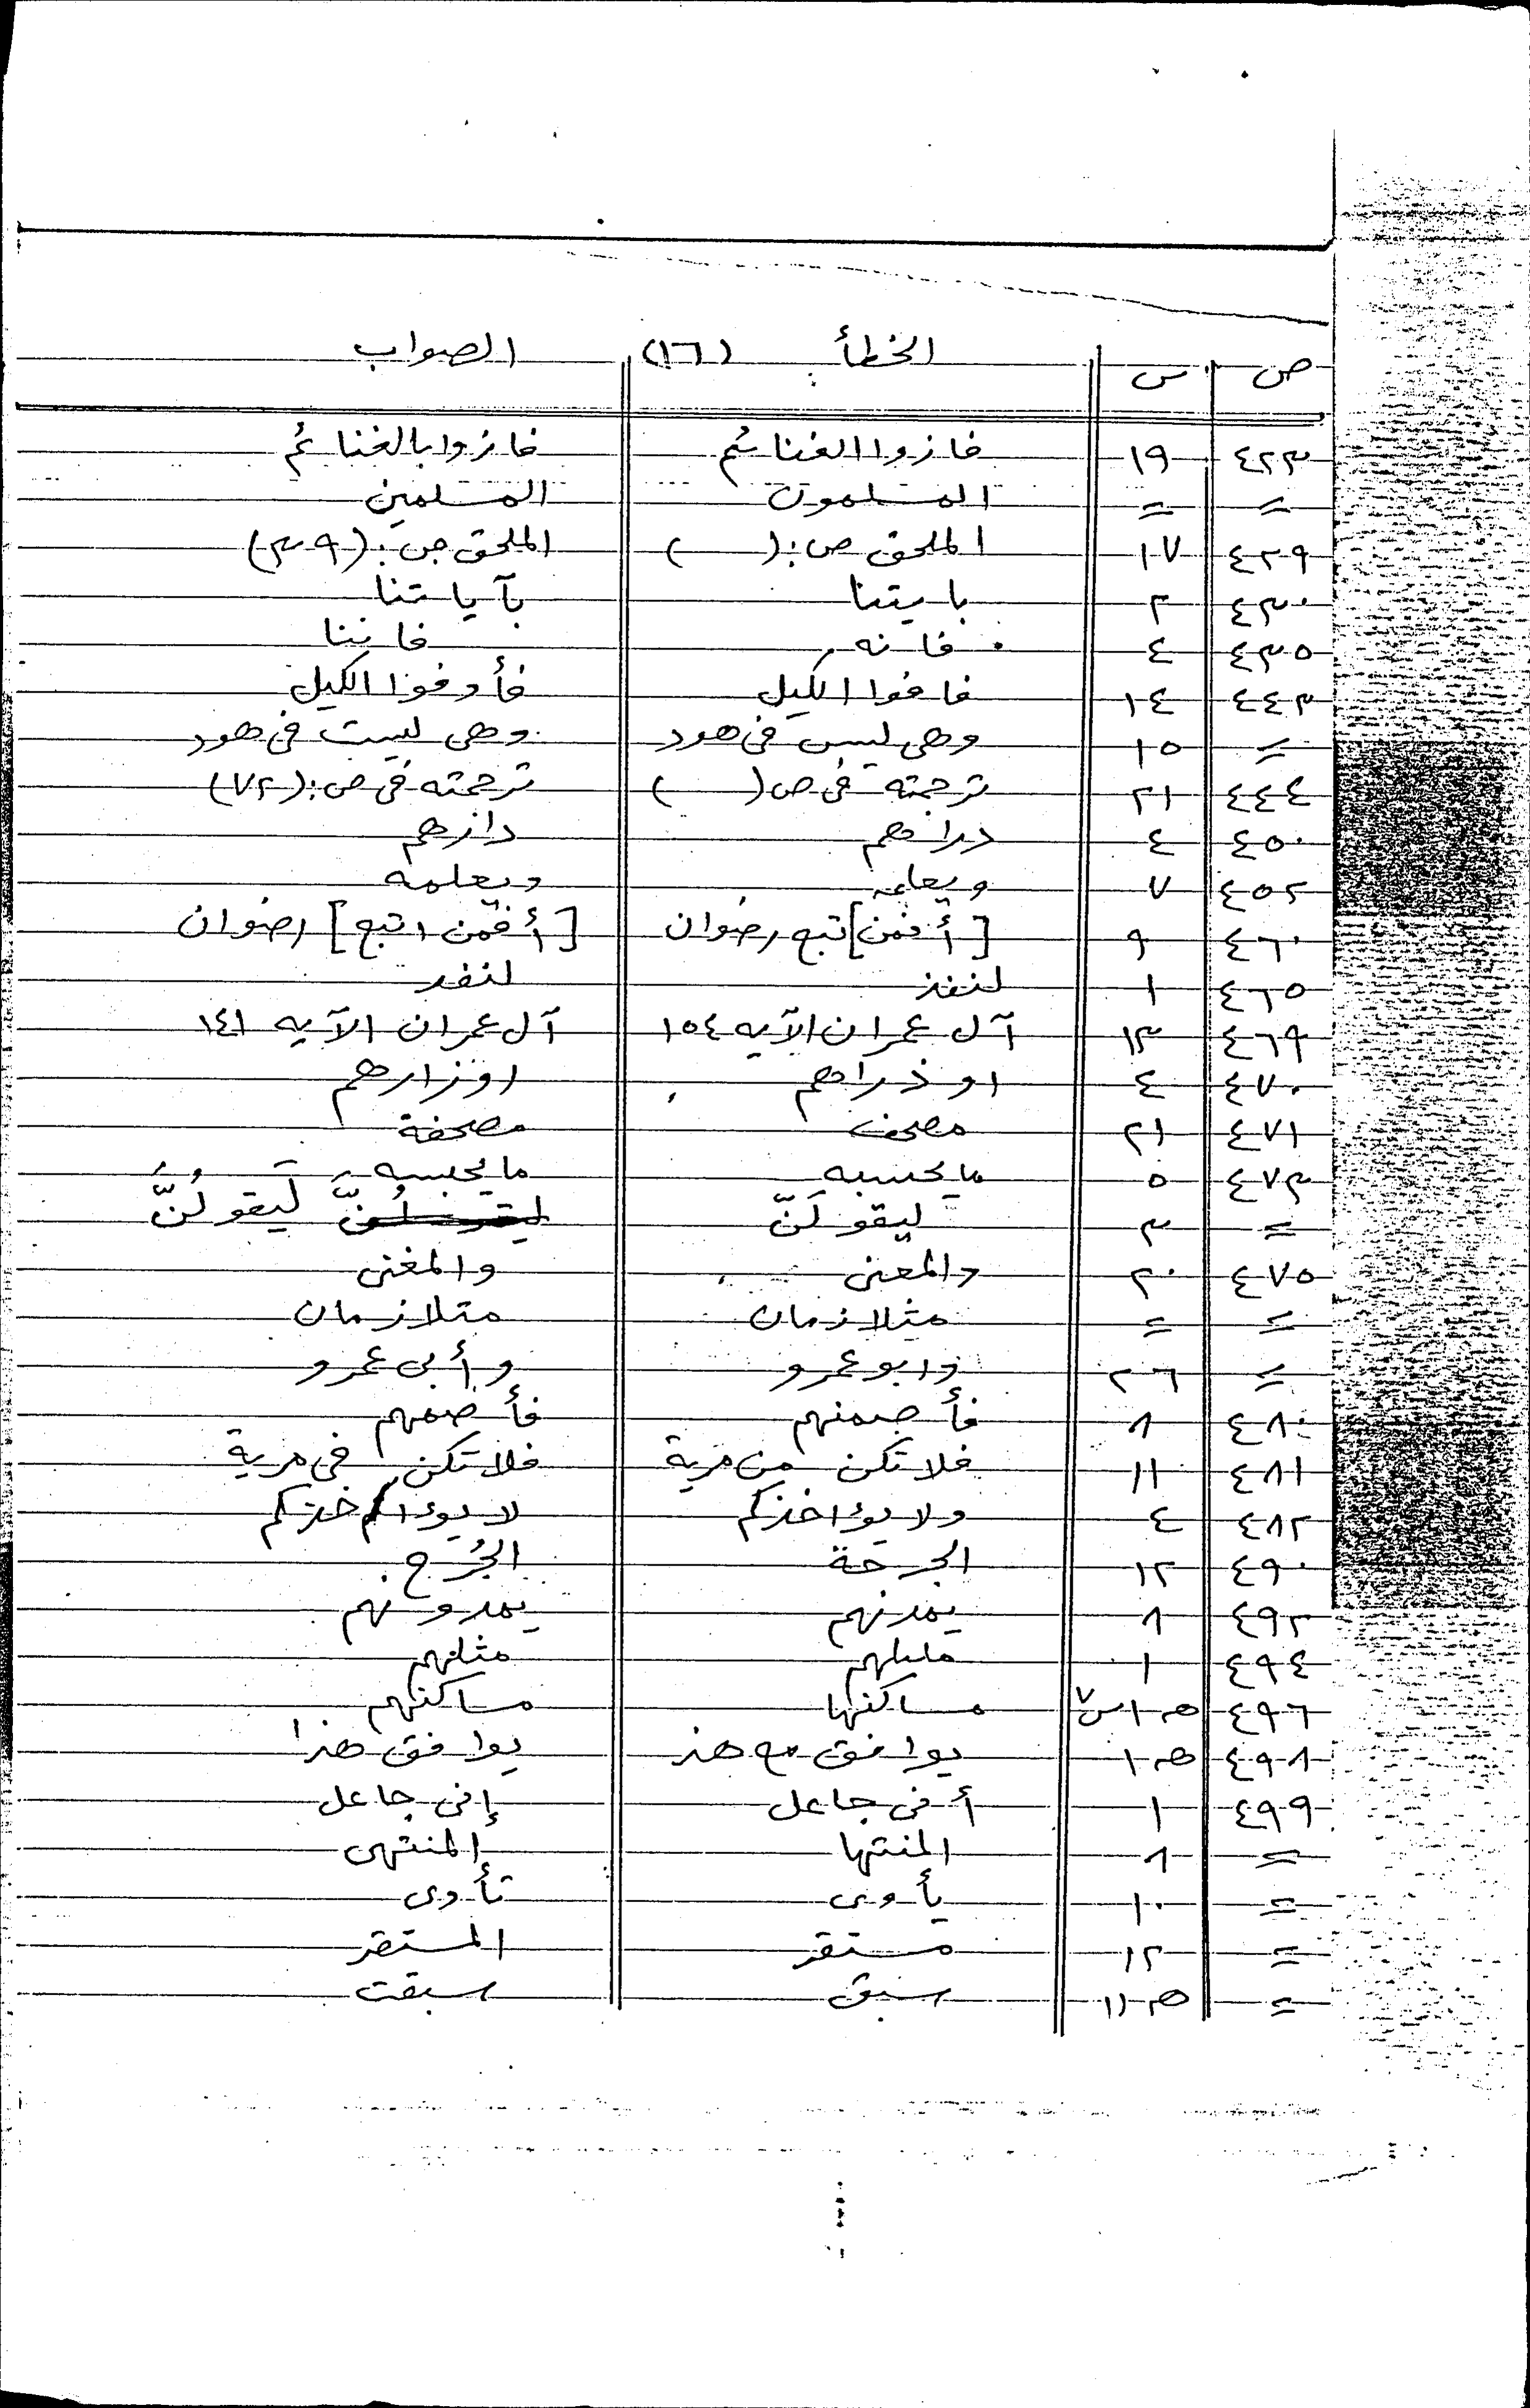 ص س الخطأ (١٦) الصواب
٤٢٣ ١٩ فازوا الغنائم فازوا بالغنائم
= = المسلمون المسلمين
٤٢٩ ١٧ الملحق ص: ( ) الملحق ص: (٣٩)
٤٣٠ ٢ بايتنا بآياتنا
٤٣٥ ٤ فانه فاننا
٤٤٣ ١٤ فافوا الكيل فأوفوا الكيل
= ١٥ وهى ليس فى هود وهى ليست فى هود
٤٤٤ ٢١ ترجمته فى ص ( ) ترجمته فى ص: (٧٢)
٤٥٠ ٤ درادهم دارهم
٤٥٢ ٧ ويعلمه ويعلمه
٤٦٠ ٩ [أفمن] تبع رضوان [أفمن اتبع] رضوان
٤٦٥ ١ لنفذ لنفد
٤٦٩ ١٣ آل عمران الآيه ١٥٤ آل عمران الآيه ١٤١
٤٧٠ ٤ اوذراهم اوزارهم
٤٧١ ٢١ مصحف مصحفة
٤٧٣ ٥ ما يحسبه ما يحبسه
= ٣ ليقولَنّ لَيَقولُنَّ
٤٧٥ ٢٠ والمعنى والمغنى
= = مثلازمان متلازمان
= ٢٦ وابو عمرو وأبى عمرو
٤٨٠ ٨ فأصمنهم فأصمهم
٤٨١ ١١ فلا تكن من مرية فلا تكن فى مرية
٤٨٢ ٤ ولا يؤاخذكم لا يؤاخذكم
٤٩٠ ١٢ الجرحة الجُرح
٤٩٢ ٨ يمدنهم يمدونهم
٤٩٤ ١ مثلهم
٤٩٦ هـ ١ س ٧ مساكنها مساكنهم
٤٩٨ هـ ١ يوافق مع هذ يوافق هذا
٤٩٩ ١ أنى جاعل إنى جاعل
= ٨ المنتها المنتهى
= ١٠ يأوى تأوى
= ١٢ مستقر المستقر
= هـ ١١ سبق سبقت